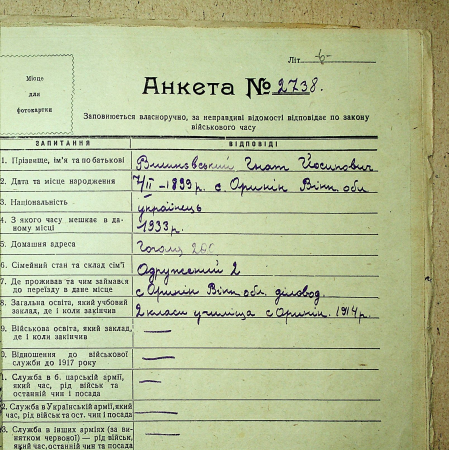 Літ
Місце
для
фотокартки
Анкета № 2738.
Заповнюється власноручно, за неправдиві відомості відповідає по закону
військового часу
ЗАПИТАННЯ ВІДПОВІДІ
1. Прізвище, ім'я та по батькові Гнат Йосипович
2. Дата та місце народження 7/II - 1899 р. с. Оринін Вінн. обл
3. Національність українець
4. З якого часу мешкає в да-
ному місці 1933 р.
5. Домашня адреса Гоголя
6. Сімейний стан та склад сім'ї Одружений 2
7. Де проживав та чим займався
до переїзду в дане місце с. Оринін Вінн. обл. діловод.
8. Загальна освіта, який учбовий
заклад, де і коли закінчив 2 класи училища с. Оринін. 1914 р.
9. Військова освіта, який заклад,
де і коли закінчив —
0. Відношення до військової
служби до 1917 року —
1. Служба в б. царській армії,
який час, рід військ та
останній чин і посада —
2. Служба в Українській армії, який
час, рід військ та ост. чин і посада —
3. Служба в інших арміях (за ви-
нятком червоної) — рід військ,
який час, останній чин та посада —